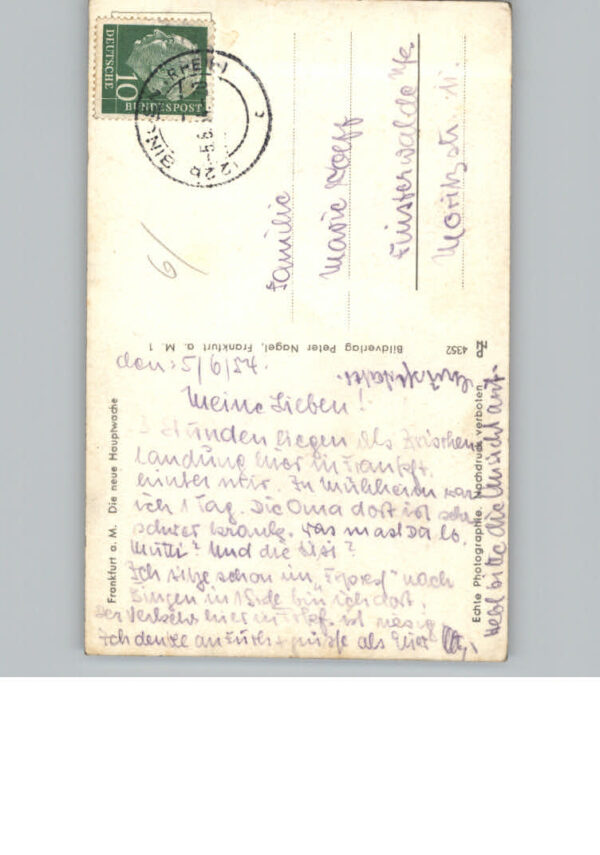 DEUTSCHE
BUNDESPOST
10
BINGEN (RHEIN)
22b
-5.6.
c
6/
Familie
Marie Wolff
Finsterwalde N/L.
Moritzstr. 11.
Bildverlag Peter Nagel, Frankfurt a. M. 1
4352
Frankfurt a. M. Die neue Hauptwache
Echte Photographie. Nachdruck verboten
den: 5/6/54.
Meine Lieben!
Stunden liegen als Zwischen
Landung hier in Frankft.
hinter mir. In Mühlheim war
ich 1 Tag. Die Oma dort ist sehr
schwer krank. Was
Mutti? Und die
Ich sitze schon im nach
Bingen in 1 Stde bin ich dort.
Der Verkehr hier in Frkf. ist riesig
Ich denke an Euch + grüße als Euer
Hebt bitte die Ansicht auf.